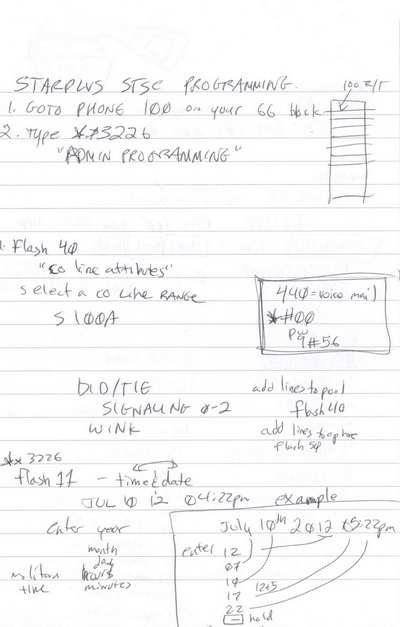 STARPLUS STSe PROGRAMMING.
100 R/T
1. GOTO PHONE 100 on your 66 block
2. Type **3226
"ADMIN PROGRAMMING"
1. flash 40
"co line attributes"
select a CO Line RANGE
S 100A
440 = voice mail
*#00
pw
9#56
DID/TIE
SIGNALING 0-2
WINK
add lines to pool
flash 40
add lines to ephone
flash 50
** 3226
flash 11 - time & date
JUL 10 12 04:22pm
example
enter year
month
day
hours
minutes
military
time
July 10th 2012 05:22pm
enter 12
07
10
17 1205
22
hold